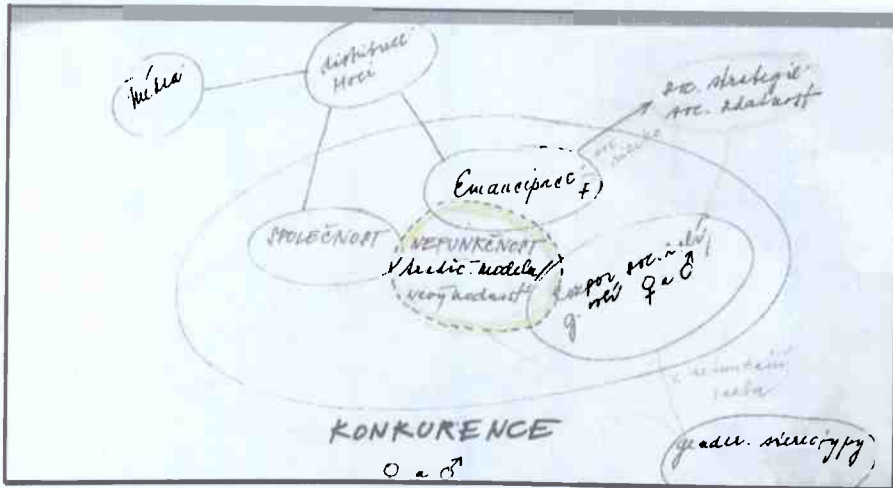 média
distribuce
moci
soc. strategie
soc. zdatnost
soc.
Emancipace ♀)
SPOLEČNOST
NEFUNKČNOST
tradič. modelu
nevýhodnost
rozpor soc. rolí
g. rolí ♀ a ♂
gender. stereotypy
KONKURENCE
♀ a ♂